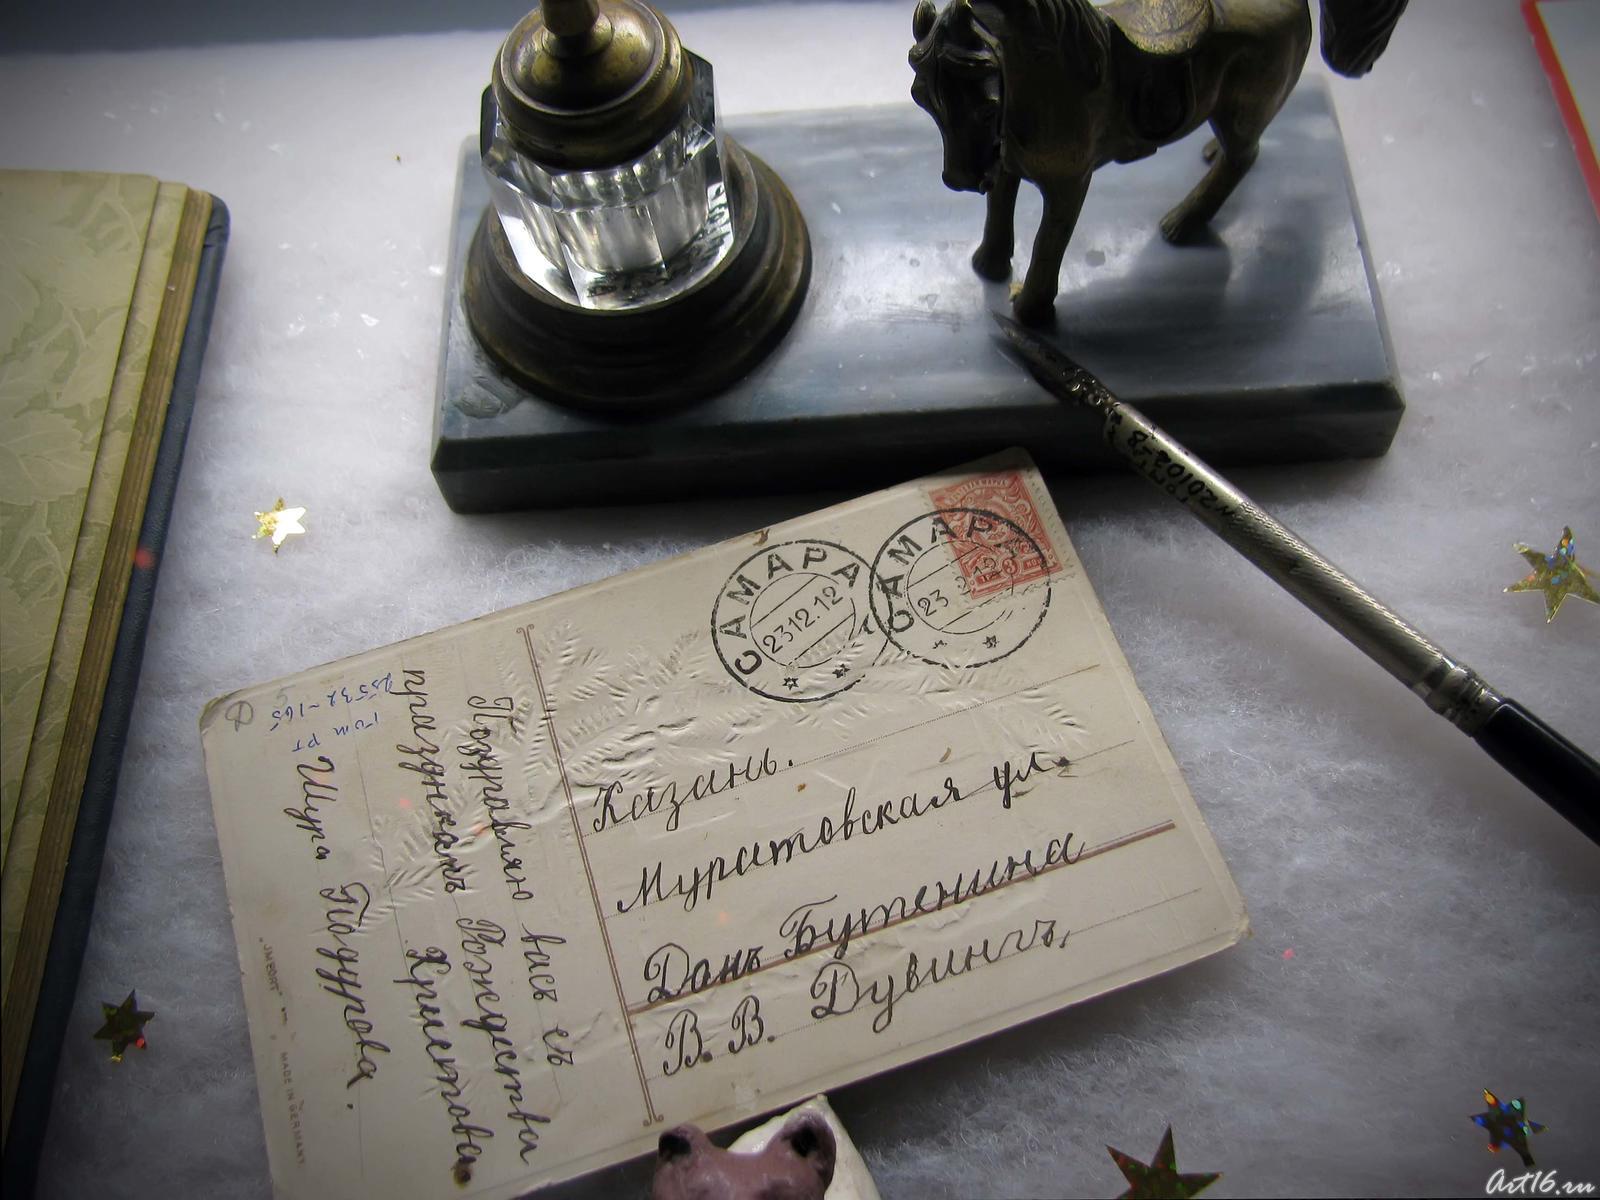 САМАРА
23.12.12
САМАРА
23 12
3
Казань.
Муратовская ул.
Домъ Бутенина
В. В. Дувингъ,
Поздравляю васъ съ
праздникомъ Рождества
Христова
Шура
ГОМ РТ
MADE IN GERMANY
Art16.ru